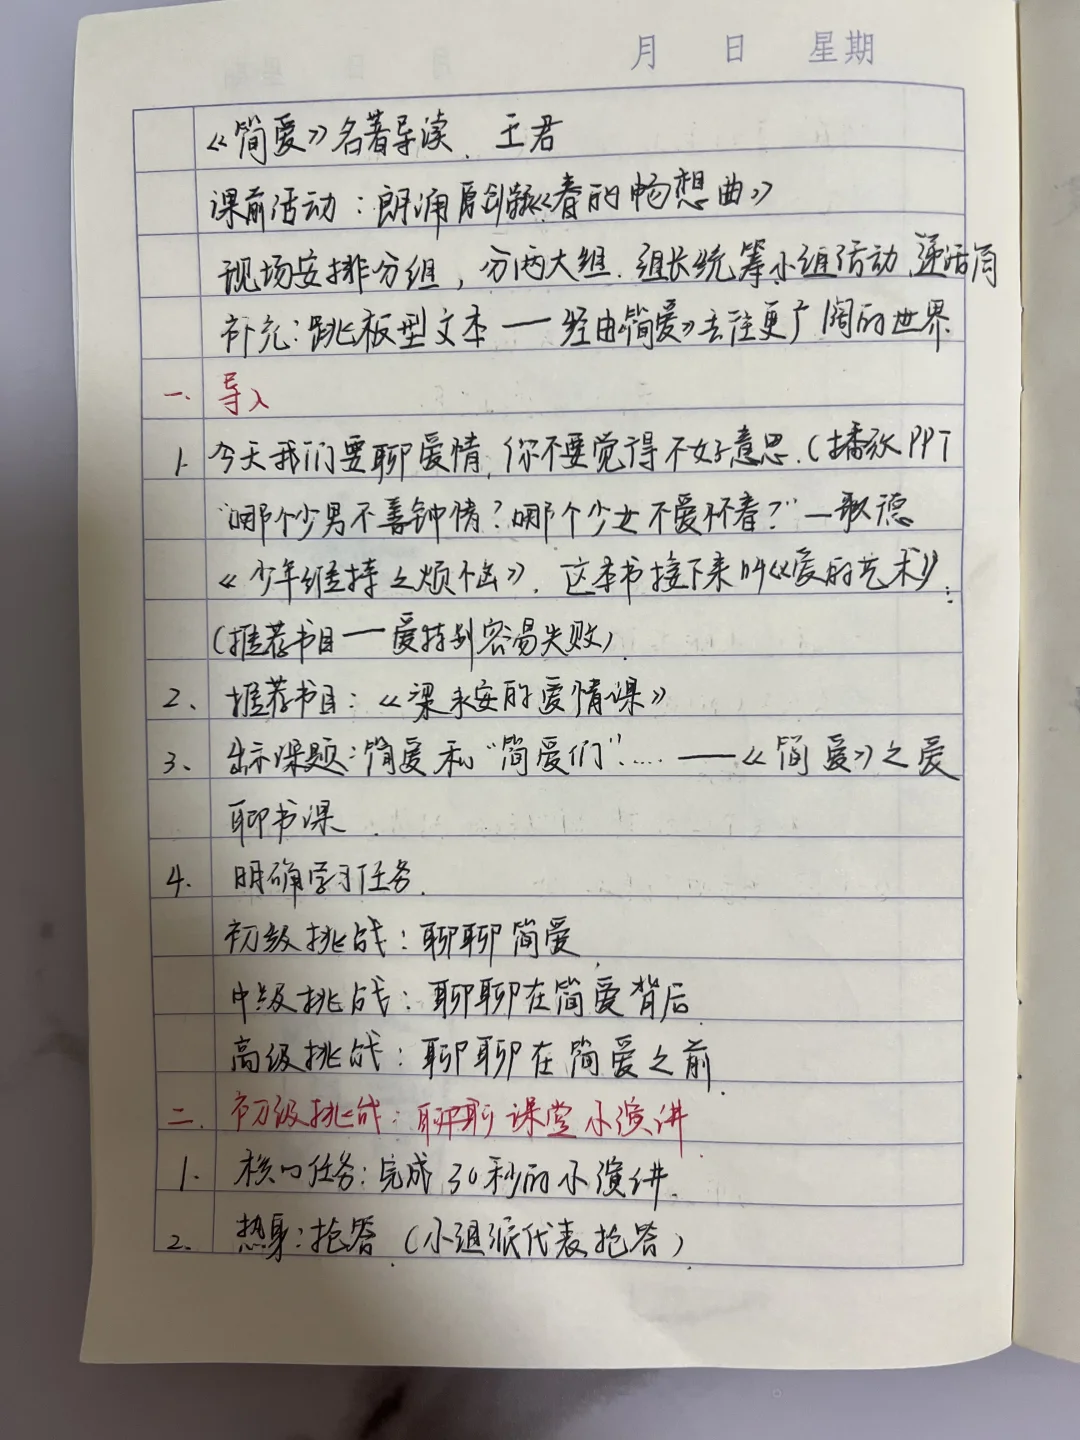 月 日 星期
《简爱》名著导读. 王君
课前活动：朗诵原创《春的畅想曲》
现场安排分组，分两大组. 组长统筹小组活动,递话筒
补充：跳板型文本——经由《简爱》去往更广阔的世界.
一. 导入
1. 今天我们要聊爱情, 你不要觉得不好意思.(播放PPT
"哪个少男不善钟情？哪个少女不爱怀春？"—歌德
《少年维持之烦恼》. 这本书接下来叫《爱的艺术》
(推荐书目——爱特别容易失败).
2、 推荐书目：《梁永安的爱情课》
3、 出示课题：简爱和"简爱们"……——《简爱》之爱
聊书课.
4. 明确学习任务.
初级挑战：聊聊简爱.
中级挑战：聊聊在简爱背后.
高级挑战：聊聊在简爱之前.
二. 初级挑战：聊聊课堂小演讲
1. 核心任务：完成30秒的小演讲.
2. 热身：抢答（小组派代表抢答）.